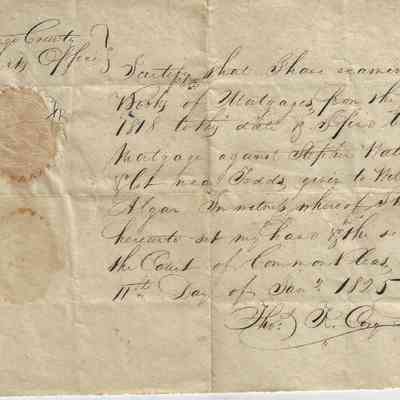 County
Office
I certify that I have examin
Books of Mortgages from the
1818 to this date & find
Mortgage against Stephen
& lot near given to
Algar In witness whereof I
hereunto set my hand & the se
the Court of Common Pleas
11th Day of Jany 1825
Thos